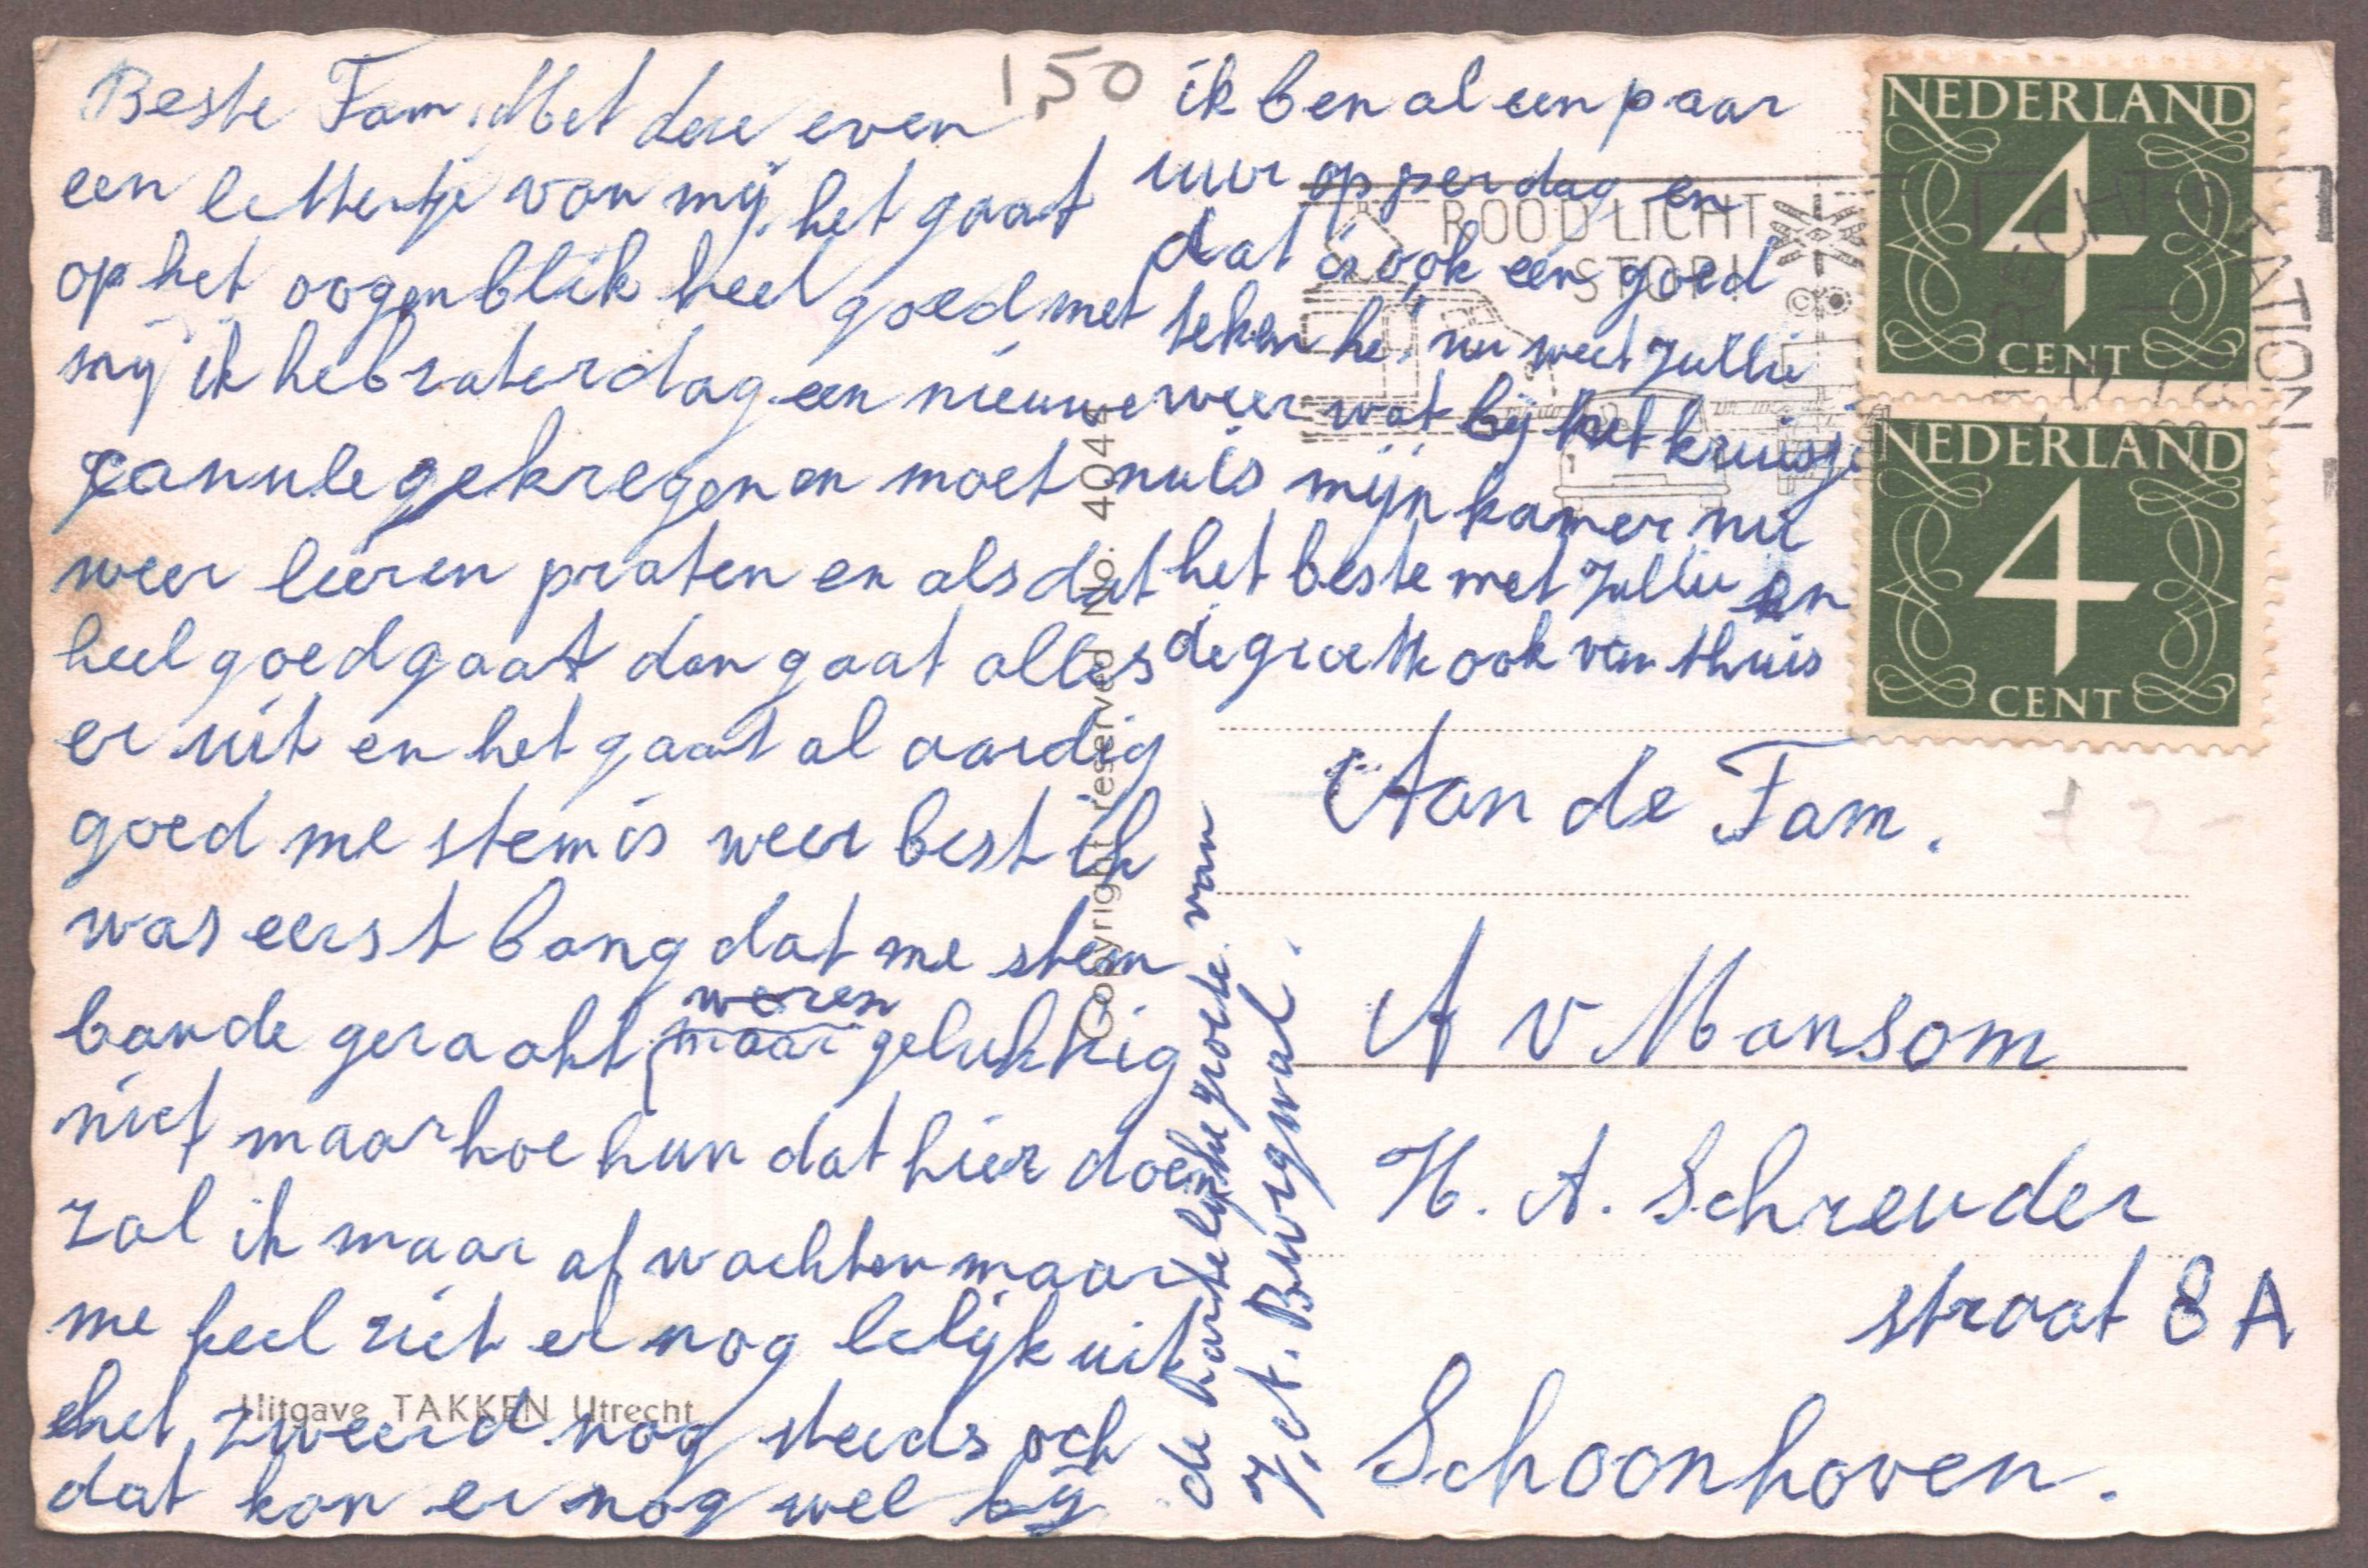 1,50
Beste Fam. Met deze even
een lettertje van mij, het gaat
op het oogenblik heel goed met
mij ik heb zaterdag een nieuwe
canule gekregen en moet
weer leeren praten en als dat
heel goed gaat dan gaat alles
er uit en het gaat al aardig
goed me stem is weer best ik
was eerst bang dat me stem
bande geraakt waren
maar gelukkig
niet maar hoe hun dat hier doen
zal ik maar afwachten maar
me keel ziet er nog lelijk uit
het zweerd nog steeds och
dat kan er nog wel bij
ik ben al een paar
uur op per dag en
dat is ook een goed
teken hé, nu weet jullie
weer wat bij het kruisje
nu is mijn kamer nu
het beste met jullie en
de groette ook van thuis
de hartelijke groete van
J.,t. Burgwal.
Aan de Fam.
A v Mansom
H. A. Schreuder
straat 8 A
Schoonhoven.
Uitgave TAKKEN Utrecht
Copyright reserved No. 4044
NEDERLAND
4
CENT
NEDERLAND
4
CENT
ROOD LICHT
STOP!
STATION